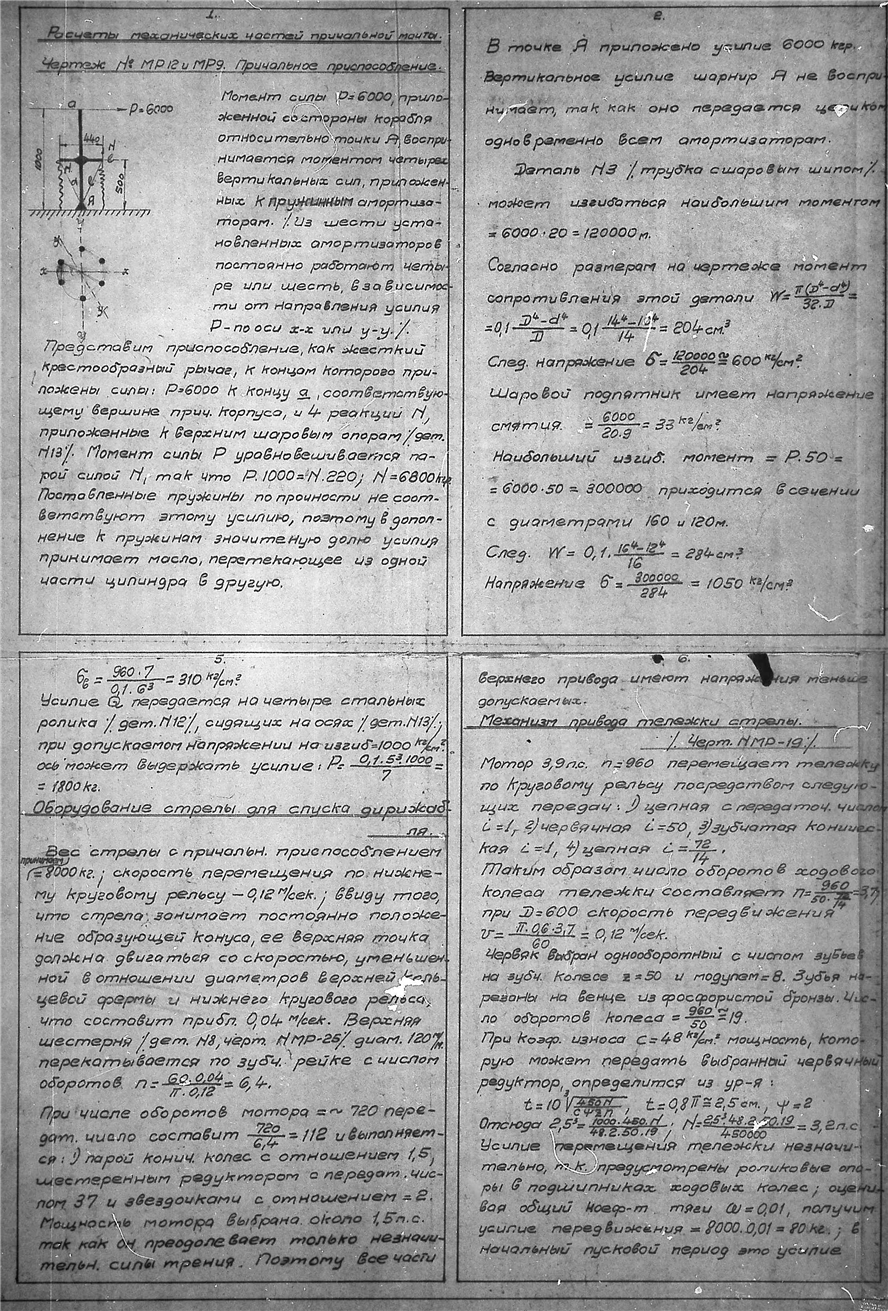 1.
Расчеты механических частей причальной мачты.
Чертеж № МР12 и МР9. Причальное приспособление.
a
P=6000
1000
440
N
N
в
в
А
500
x
x
y
y
Момент силы P=6000, прило-
женной со стороны корабля
относительно точки А, воспри-
нимается моментом четырех
вертикальных сил, приложен-
ных к пружинным амортиза-
торам. /. Из шести уста-
новленных амортизаторов
постоянно работают четы-
ре или шесть, в зависимос-
ти от направления усилия
P-по оси х-х или у-у./.
Представим приспособление, как жесткий
крестообразный рычаг, к концам которого при-
ложены силы: P=6000 к концу а, соответствую-
щему вершине прич. корпуса, и 4 реакции N,
приложенные к верхним шаровым опорам /. дет.
N13/. Момент силы P уравновешивается па-
рой силой N, так что P.1000=N.220; N=6800кг.
Поставленные пружины по прочности не соот-
ветствуют этому усилию, поэтому в допол-
нение к пружинам значителную долю усилия
принимает масло, перетекающее из одной
части цилиндра в другую.
2.
В точке А приложено усилие 6000 кгр.
Вертикальное усилие шарнир А не воспри-
нимает, так как оно передается целиком
одновременно всем амортизаторам.
Деталь N3 /. трубка с шаровым шипом/.
может изгибаться наибольшим моментом
= 6000·20 = 120000м.
Согласно размерам на чертеже момент
сопротивления этой детали W= π(D⁴-d⁴)/32.D =
=0,1 D⁴-d⁴/D = 0,1 14⁴-10⁴/14 = 204 см.³
След. напряжение б= 120000/204 ≅ 600 кг/см².
Шаровой подпятник имеет напряжение
смятия. = 6000/20.9 = 33 кг/см².
Наибольший изгиб. момент = P.50 =
= 6000·50 = 300000 приходится в сечении
с диаметрами 160 и 120м.
След. W= 0,1. 16⁴-12⁴/16 = 284 см³
Напряжение б= 300000/284 = 1050 кг/см².
5.
бб = 960·7/0,1·6³ = 310 кг/см².
Усилие Q передается на четыре стальных
ролика /. дет. N12/, сидящих на осях /. дет. N13/.;
при допускаемом напряжении на изгиб=1000 кг/см².
ось может выдержать усилие: P= 0,1.5³.1000/7 =
= 1800 кг.
Оборудование стрелы для спуска дирижаб-
ля.
Вес стрелы с причальн. приспособлением
принимаем
=8000кг.; скорость перемещения по нижне-
му круговому рельсу – 0,12 м/сек.; ввиду того,
что стрела занимает постоянно положе-
ние образующей конуса, ее верхняя точка
должна двигаться со скоростью, уменьшен-
ной в отношении диаметров верхней коль-
цевой фермы и нижнего кругового рельса,
что составит прибл. 0,04 м/сек. Верхняя
шестерня /дет. N8, черт. NМР-25/. диам. 120 м/м.
перекатывается по зубч. рейке с числом
оборотов n= 60.0,04/π.0,12 = 6,4.
При числе оборотов мотора =~ 720 пере-
дат. число составит 720/6,4 = 112 и выполняет-
ся: 1) парой конич. колес с отношением 1,5,
шестеренным редуктором с передат. чис-
лом 37 и звездочками с отношением = 2.
Мощность мотора выбрана около 1,5 л.с.
так как он преодолевает только незначи-
тельн. силы трения. Поэтому все части
6.
верхнего привода имеют напряжения меньше
допускаемых.
Механизм привода тележки стрелы.
/. Черт. NМР-19./.
Мотор 3,9л.с. n=960 перемещает тележку
по круговому рельсу посредством следую-
щих передач: 1) цепная с передаточ. числом
i=1, 2) червячная i=50, 3) зубчатая коничес-
кая i=1, 4) цепная i= 72/14.
Таким образом число оборотов ходового
колеса тележки составляет n= 960/50.72/14 =3,7
при D=600 скорость передвижения
v= π.0,6.3,7/60 = 0,12 м/сек.
Червяк выбран однооборотный с числом зубьев
на зубч. колесе z=50 и модулем=8. Зубья на-
резаны на венце из фосфористой бронзы. Чис-
ло оборотов колеса = 960/50 ≅ 19.
При коэф. износа c=48 кг/см². мощность, кото-
рую может передать выбранный червячный
редуктор, определится из ур-я:
t=10 ³√450N/cψzn, t=0,8π≅2,5см., ψ=2
Отсюда 2,5³= 1000.450.N/48.2.50.19, N= 2,5³.48.2.50.19/450000 = 3,2 л.с.
Усилие перемещения тележки незначи-
тельно, т.к. предусмотрены роликовые опо-
ры в подшипниках ходовых колес; оцени-
вая общий коеф-т тяги ω=0,01, получим
усилие передвижения = 8000.0,01 = 80 кг.; в
начальный пусковой период это усилие